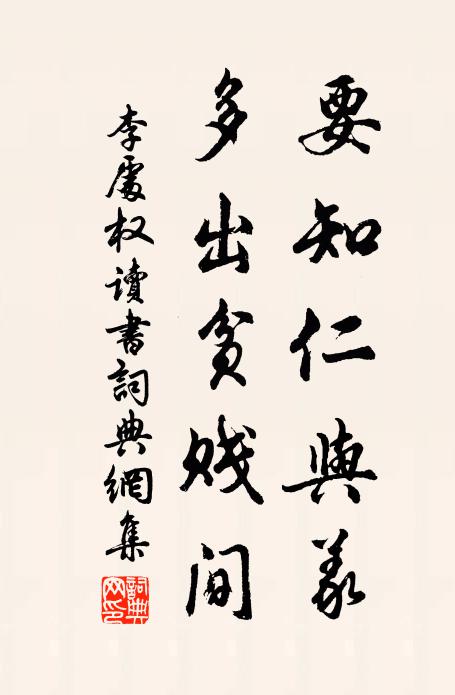 要知仁與義
多出貧賤间
李處权讀書詞典網集
詞典网印